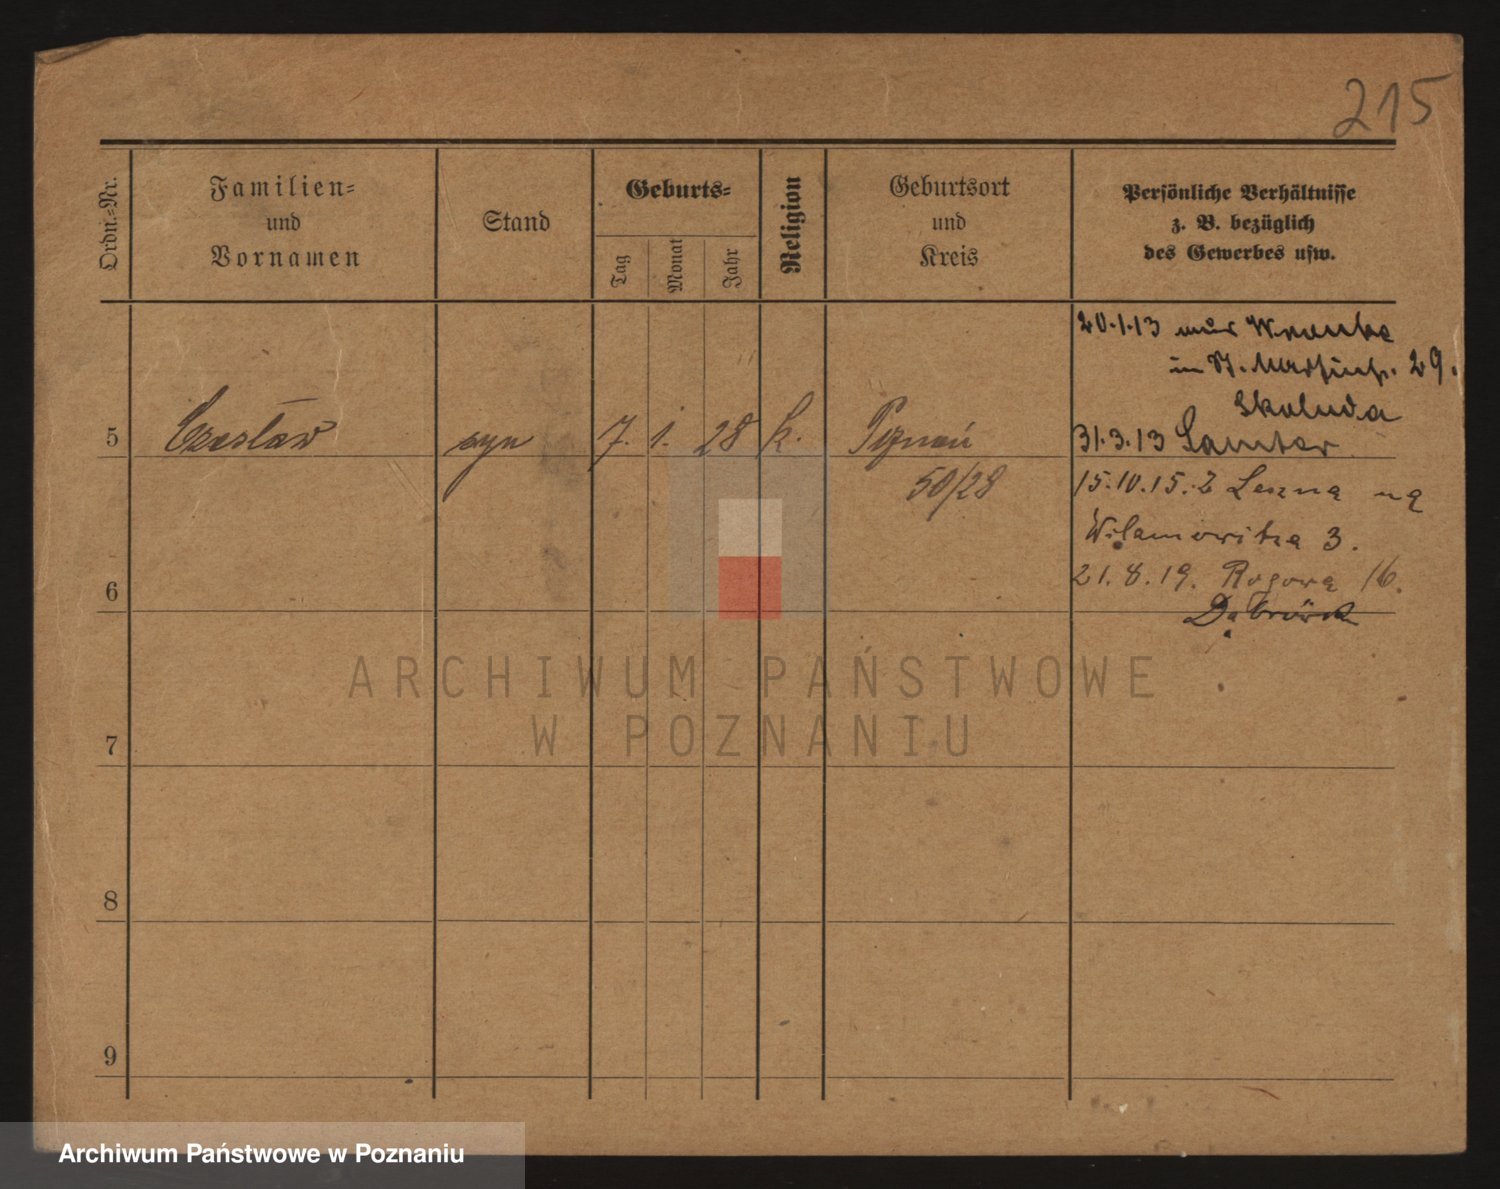 215
Ordn.-Nr.
Familien-
und
Vornamen
Stand
Geburts-
Tag
Monat
Jahr
Religion
Geburtsort
und
Kreis
Persönliche Verhältnisse
z. B. bezüglich
des Gewerbes usw.
20.1.13 Wronke
St. 29.
Skaluda
5 Czesław syn 7. 1. 28 k. Poznań 31.3.13 Samter
50/28 15.10.15. Z Leszna na
Wilamowitza 3.
6 21.8.19. Rogowa 16.
7
8
9
ARCHIWUM PAŃSTWOWE
W POZNANIU
Archiwum Państwowe w Poznaniu